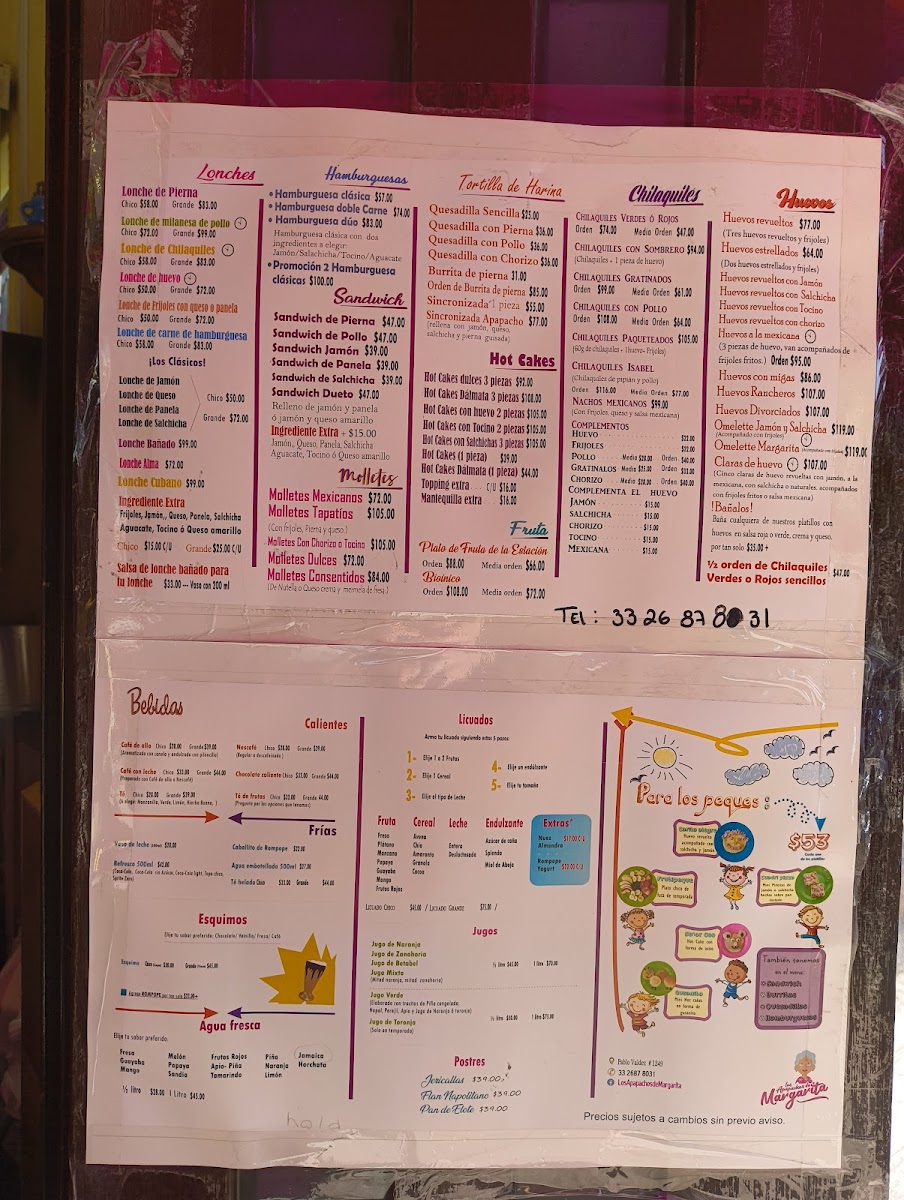 Lonches
Lonche de Pierna
Chico $58.00 Grande $83.00
Lonche de milanesa de pollo
Chico $72.00 Grande $99.00
Lonche de Chilaquiles
Chico $58.00 Grande $83.00
Lonche de huevo
Chico $50.00 Grande $72.00
Lonche de Frijoles con queso o panela
Chico $50.00 Grande $72.00
Lonche de carne de hamburguesa
Chico $58.00 Grande $83.00
¡Los Clásicos!
Lonche de Jamón
Lonche de Queso
Lonche de Panela
Lonche de Salchicha
Chico $50.00
Grande $72.00
Lonche Bañado $99.00
Lonche Alma $72.00
Lonche Cubano $99.00
Ingrediente Extra
Frijoles, Jamón,, Queso, Panela, Salchicha
Aguacate, Tocino ó Queso amarillo
Chico $15.00 C/U Grande $25.00 C/U
Salsa de lonche bañado para
tu lonche $33.00 --- Vaso con 200 ml
Hamburguesas
• Hamburguesa clásica $57.00
• Hamburguesa doble Carne $74.00
• Hamburguesa dúo $83.00
Hamburguesa clásica con dos
ingredientes a elegir:
Jamón/Salachicha/Tocino/Aguacate
• Promoción 2 Hamburguesa
clásicas $100.00
Sandwich
Sandwich de Pierna $47.00
Sandwich de Pollo $47.00
Sandwich Jamón $39.00
Sandwich de Panela $39.00
Sandwich de Salchicha $39.00
Sandwich Dueto $47.00
Relleno de jamón y panela
ó jamón y queso amarillo
Ingrediente Extra + $15.00
Jamón, Queso, Panela, Salchicha
Aguacate, Tocino ó Queso amarillo
Molletes
Molletes Mexicanos $72.00
Molletes Tapatíos $105.00
(Con frijoles, Pierna y queso)
Molletes Con Chorizo o Tocino $105.00
Molletes Dulces $72.00
Molletes Consentidos $84.00
(De Nutella o Queso crema y mermela de fresa)
Tortilla de Harina
Quesadilla Sencilla $25.00
Quesadilla con Pierna $36.00
Quesadilla con Pollo $36.00
Quesadilla con Chorizo $36.00
Burrita de pierna $1.00
Orden de Burrita de pierna $85.00
Sincronizada 1 pieza $55.00
Sincronizada Apapacho $77.00
(rellena con jamón, queso,
salchicha y pierna guisada)
Hot Cakes
Hot Cakes dulces 3 piezas $92.00
Hot Cakes Dálmata 3 piezas $108.00
Hot Cakes con huevo 2 piezas $105.00
Hot Cakes con Tocino 2 piezas $105.00
Hot Cakes con Salchichas 3 piezas $105.00
Hot Cakes (1 pieza) $39.00
Hot Cakes Dalmata (1 pieza) $44.00
Topping extra C/U $16.00
Mantequilla extra $16.00
Fruta
Plato de Fruta de la Estación
Orden $88.00 Media orden $66.00
Bioinico
Orden $108.00 Media orden $72.00
Chilaquiles
Chilaquiles Verdes ó Rojos
Orden $74.00 Media Orden $47.00
Chilaquiles con Sombrero $94.00
(Chilaquiles + 1 pieza de huevo)
Chilaquiles Gratinados
Orden $99.00 Media Orden $61.00
Chilaquiles con Pollo
Orden $108.00 Media Orden $64.00
Chilaquiles Paqueteados $105.00
(60g de chilaquiles + 1 huevo+ Frijoles)
Chilaquiles Isabel
(Chilaquiles de pipian y pollo)
Orden $116.00 Media Orden $77.00
Nachos mexicanos $99.00
(Con frijoles, queso y salsa mexicana)
Complementos
Huevo $22.00
Frijoles $22.00
Pollo Media $28.00 Orden $40.00
Gratinalos Media $25.00 Orden $33.00
Chorizo Media $28.00 Orden $40.00
Complementa el huevo
Jamón $15.00
Salchicha $15.00
Chorizo $15.00
Tocino $15.00
Mexicana $15.00
Huevos
Huevos revueltos $77.00
(Tres huevos revueltos y frijoles)
Huevos estrellados $64.00
(Dos huevos estrellados y frijoles)
Huevos revueltos con Jamón
Huevos revueltos con Salchicha
Huevos revueltos con Tocino
Huevos revueltos con chorizo
Huevos a la mexicana
(3 piezas de huevo, van acompañados de +
frijoles fritos.) Orden $95.00
Huevos con migas $86.00
Huevos Rancheros $107.00
Huevos Divorciados $107.00
Omelette Jamón y Salchicha $119.00
(Acompañado con frijoles)
Omelette Margarita $119.00
Claras de huevo $107.00
(Cinco claras de huevo revueltas con jamón, a la
mexicana, con salchicha o naturales, acompañados
con frijoles fritos o salsa mexicana)
!Bañalos!
Baña cualquiera de nuestros platillos con
huevos en salsa roja o verde, crema y queso,
por tan solo $35.00 +
½ orden de Chilaquiles
Verdes o Rojos sencillos $47.00
Tel: 33 26 87 80 31
Bebidas
Calientes
Café de olla Chico $28.00 Grande $39.00
(Aromatizado con canela y endulzado con piloncillo)
Nescafé Chico $28.00 Grande $39.00
(Regular o descafeinado)
Café con leche Chico $33.00 Grande $44.00
(Preparado con Café de olla o Nescafé)
Chocolate caliente Chico $33.00 Grande $44.00
Té Chico $28.00 Grande $39.00
(A elegir: Manzanilla, Verde, Limón, Hierba Buena,)
Té de frutas Chico $33.00 Grande 44.00
(Pregunta por las opciones que tenemos)
Frías
Vaso de leche
Caballito de Rompope $22.00
Refresco 500ml $42.00
(Coca-Cola, Coca-Cola sin Azúcar, Coca-Cola light, Topo chico,
Sprite Zero)
Agua embotellada 500ml $27.00
Té helado Chico $33.00 Grande $44.00
Esquimos
Elije tu sabor preferido: Chocolate/ Vainilla/ Fresa/ Café
Esquimo
Agua fresca
Elije tu sabor preferido:
Fresa
Guayaba
Mango
Melón
Papaya
Sandía
Frutos Rojos
Apio- Piña
Tamarindo
Piña
Naranja
Limón
Jamaica
Horchata
½ litro $38.00 1 Litro $45.00
Licuados
Arma tu licuado siguiendo estos 5 pasos:
1- Elije 1 o 2 Frutas
2- Elije 1 Cereal
3- Elije el tipo de Leche
4- Elije un endulzante
5- Elije tu tamaño
Fruta
Fresa
Plátano
Manzana
Papaya
Guayaba
Mango
Frutos Rojos
Cereal
Avena
Chía
Amaranto
Granola
Cocoa
Leche
Entera
Deslactosada
Endulzante
Azúcar de caña
Splenda
Miel de Abeja
Extras*
Nuez $17.00 C/U
Almendra
Rompope $22.00 C/U
Yogurt
Licuado Chico $61.00 / Licuado Grande $75.00 /
Jugos
Jugo de Naranja
Jugo de Zanahoria
Jugo de Betabel
Jugo Mixto
(Mitad naranja, mitad, zanahoria)
½ litro $45.00 1 litro $70.00
Jugo Verde
(Elaborado con trocitos de Piña congelada,
Nopal, Perejil, Apio y Jugo de Naranja ó toronja)
Jugo de Toronja
(Solo en temporada)
½ litro $50.00 1 litro $75.00
Postres
Jericallas $39.00
Flan Napolitano $39.00
Pan de Elote $39.00
Para los peques:
$53
También tenemos
en el menú:
Sandwich
Burritos
Quesadillas
Hamburguesas
Pablo Valdez #1249
33 2687 8031
LosApapachosdeMargarita
Los Apapachos de
Margarita
Precios sujetos a cambios sin previo aviso.
hola